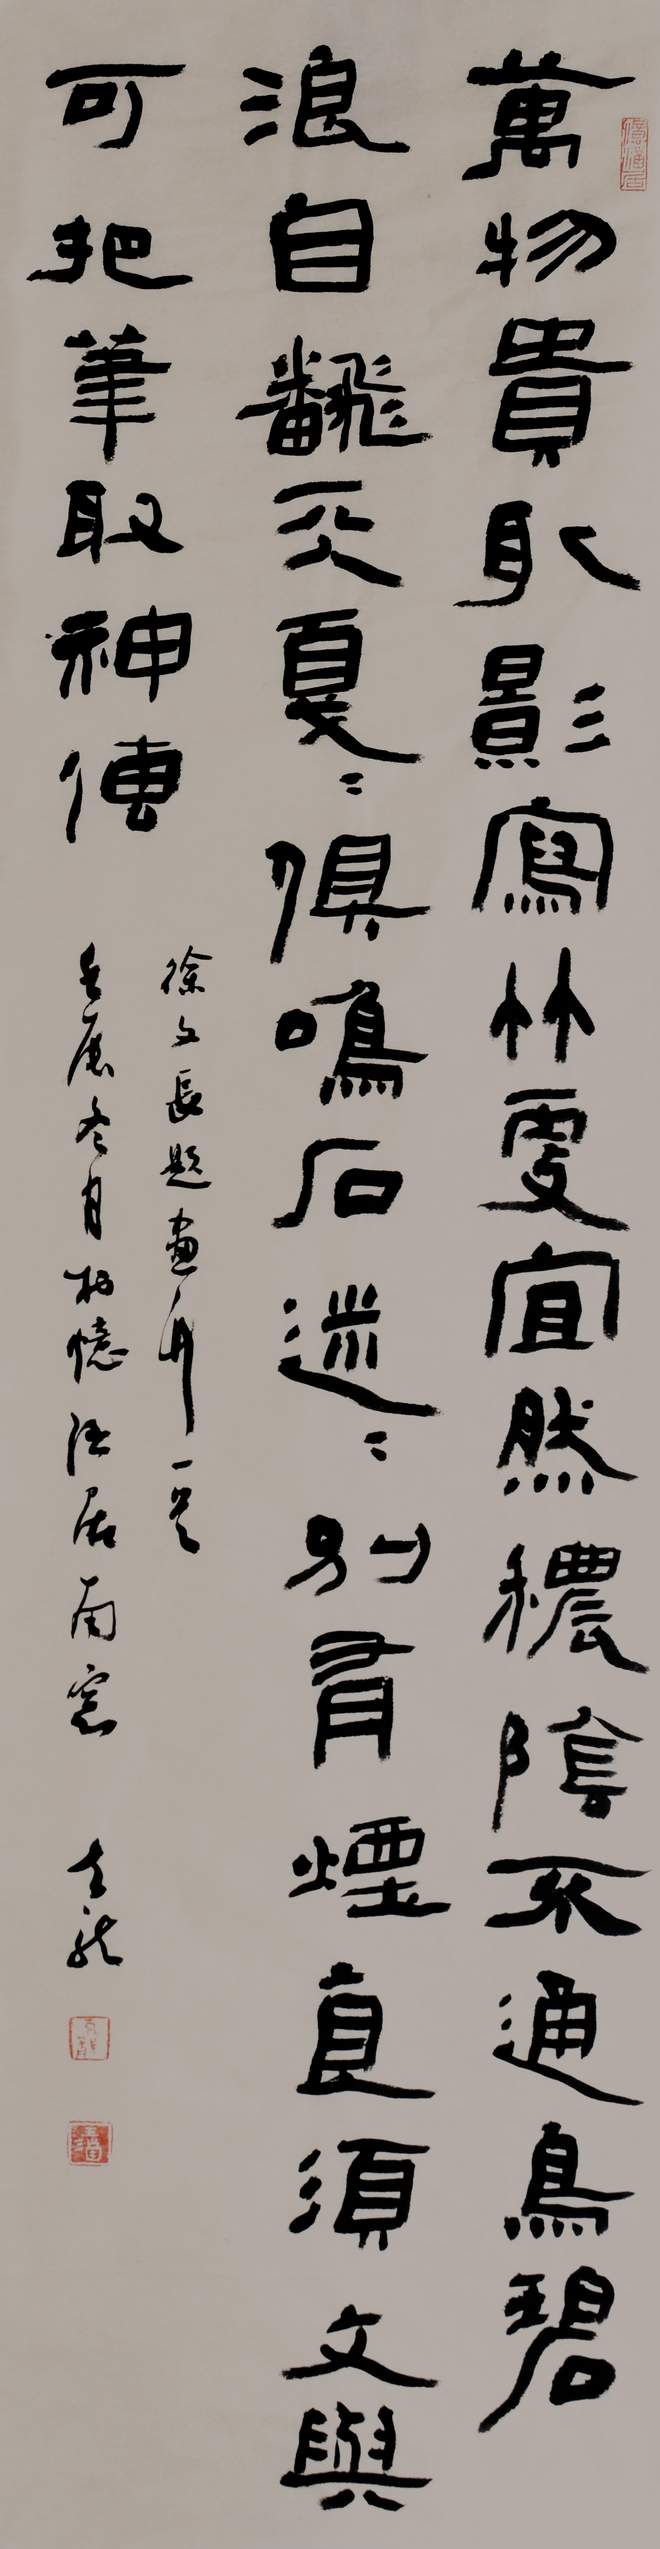 萬物貴取影寫竹更宜然穠陰不通鳥碧
浪自翻天戛〻俱鳴石迷〻別有煙直須文與
可把筆取神傳
徐文長題畫竹一首
壬辰冬月於憶 居南窗